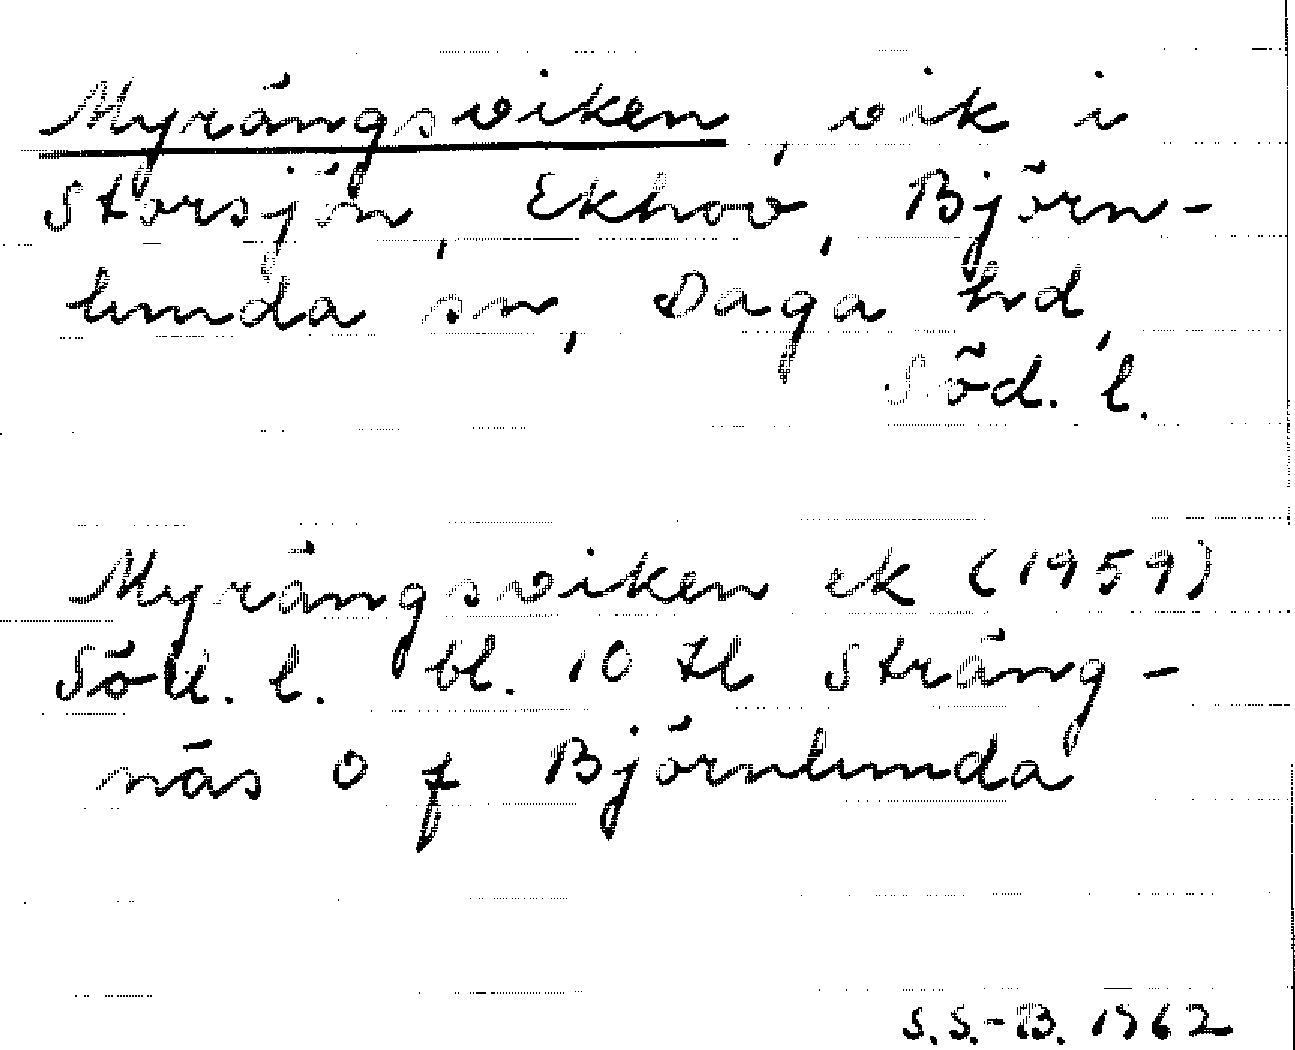 Myrängsviken, vik i
Storsjön, Ekhov, Björn-
lunda sn, Daga hd,
Söd. l.
Myrängsviken ek (1959)
Söd. l. bl. 10 till Sträng-
näs O f Björnlunda
S.S.-B. 1962